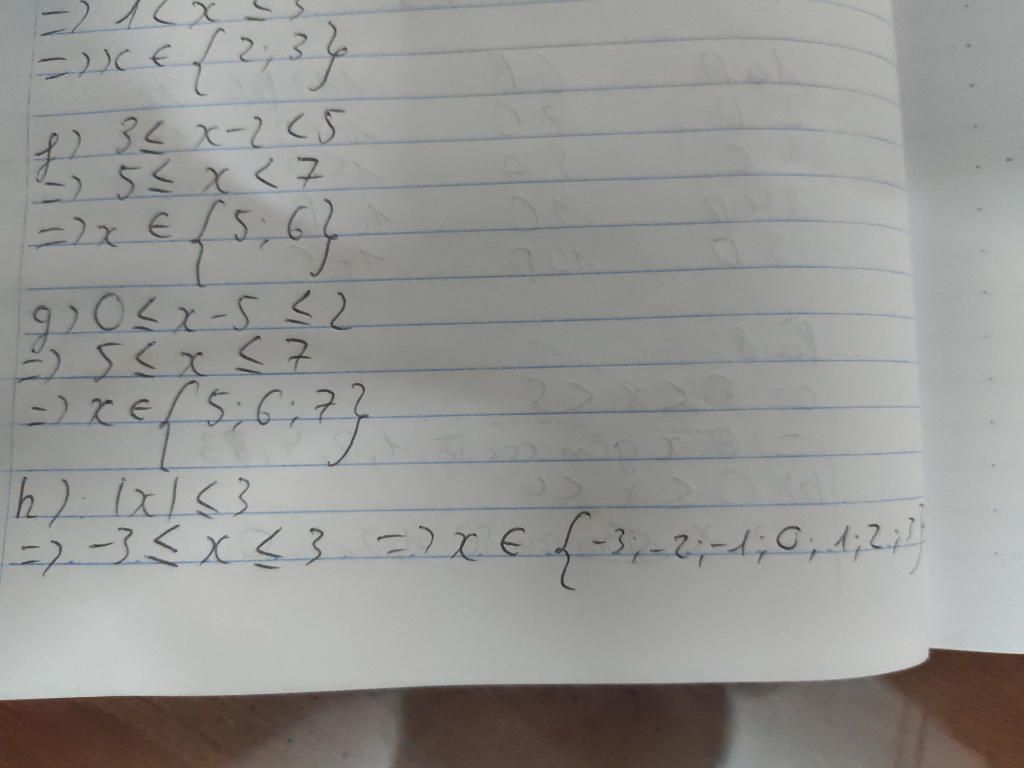 => 1 < x ≤ 3
=> x ∈ {2; 3}
f) 3 ≤ x-2 < 5
=> 5 ≤ x < 7
=> x ∈ {5; 6}
g) 0 ≤ x-5 ≤ 2
=> 5 ≤ x ≤ 7
=> x ∈ {5; 6; 7}
h) |x| ≤ 3
=> -3 ≤ x ≤ 3 => x ∈ {-3; -2; -1; 0; 1; 2; 3}